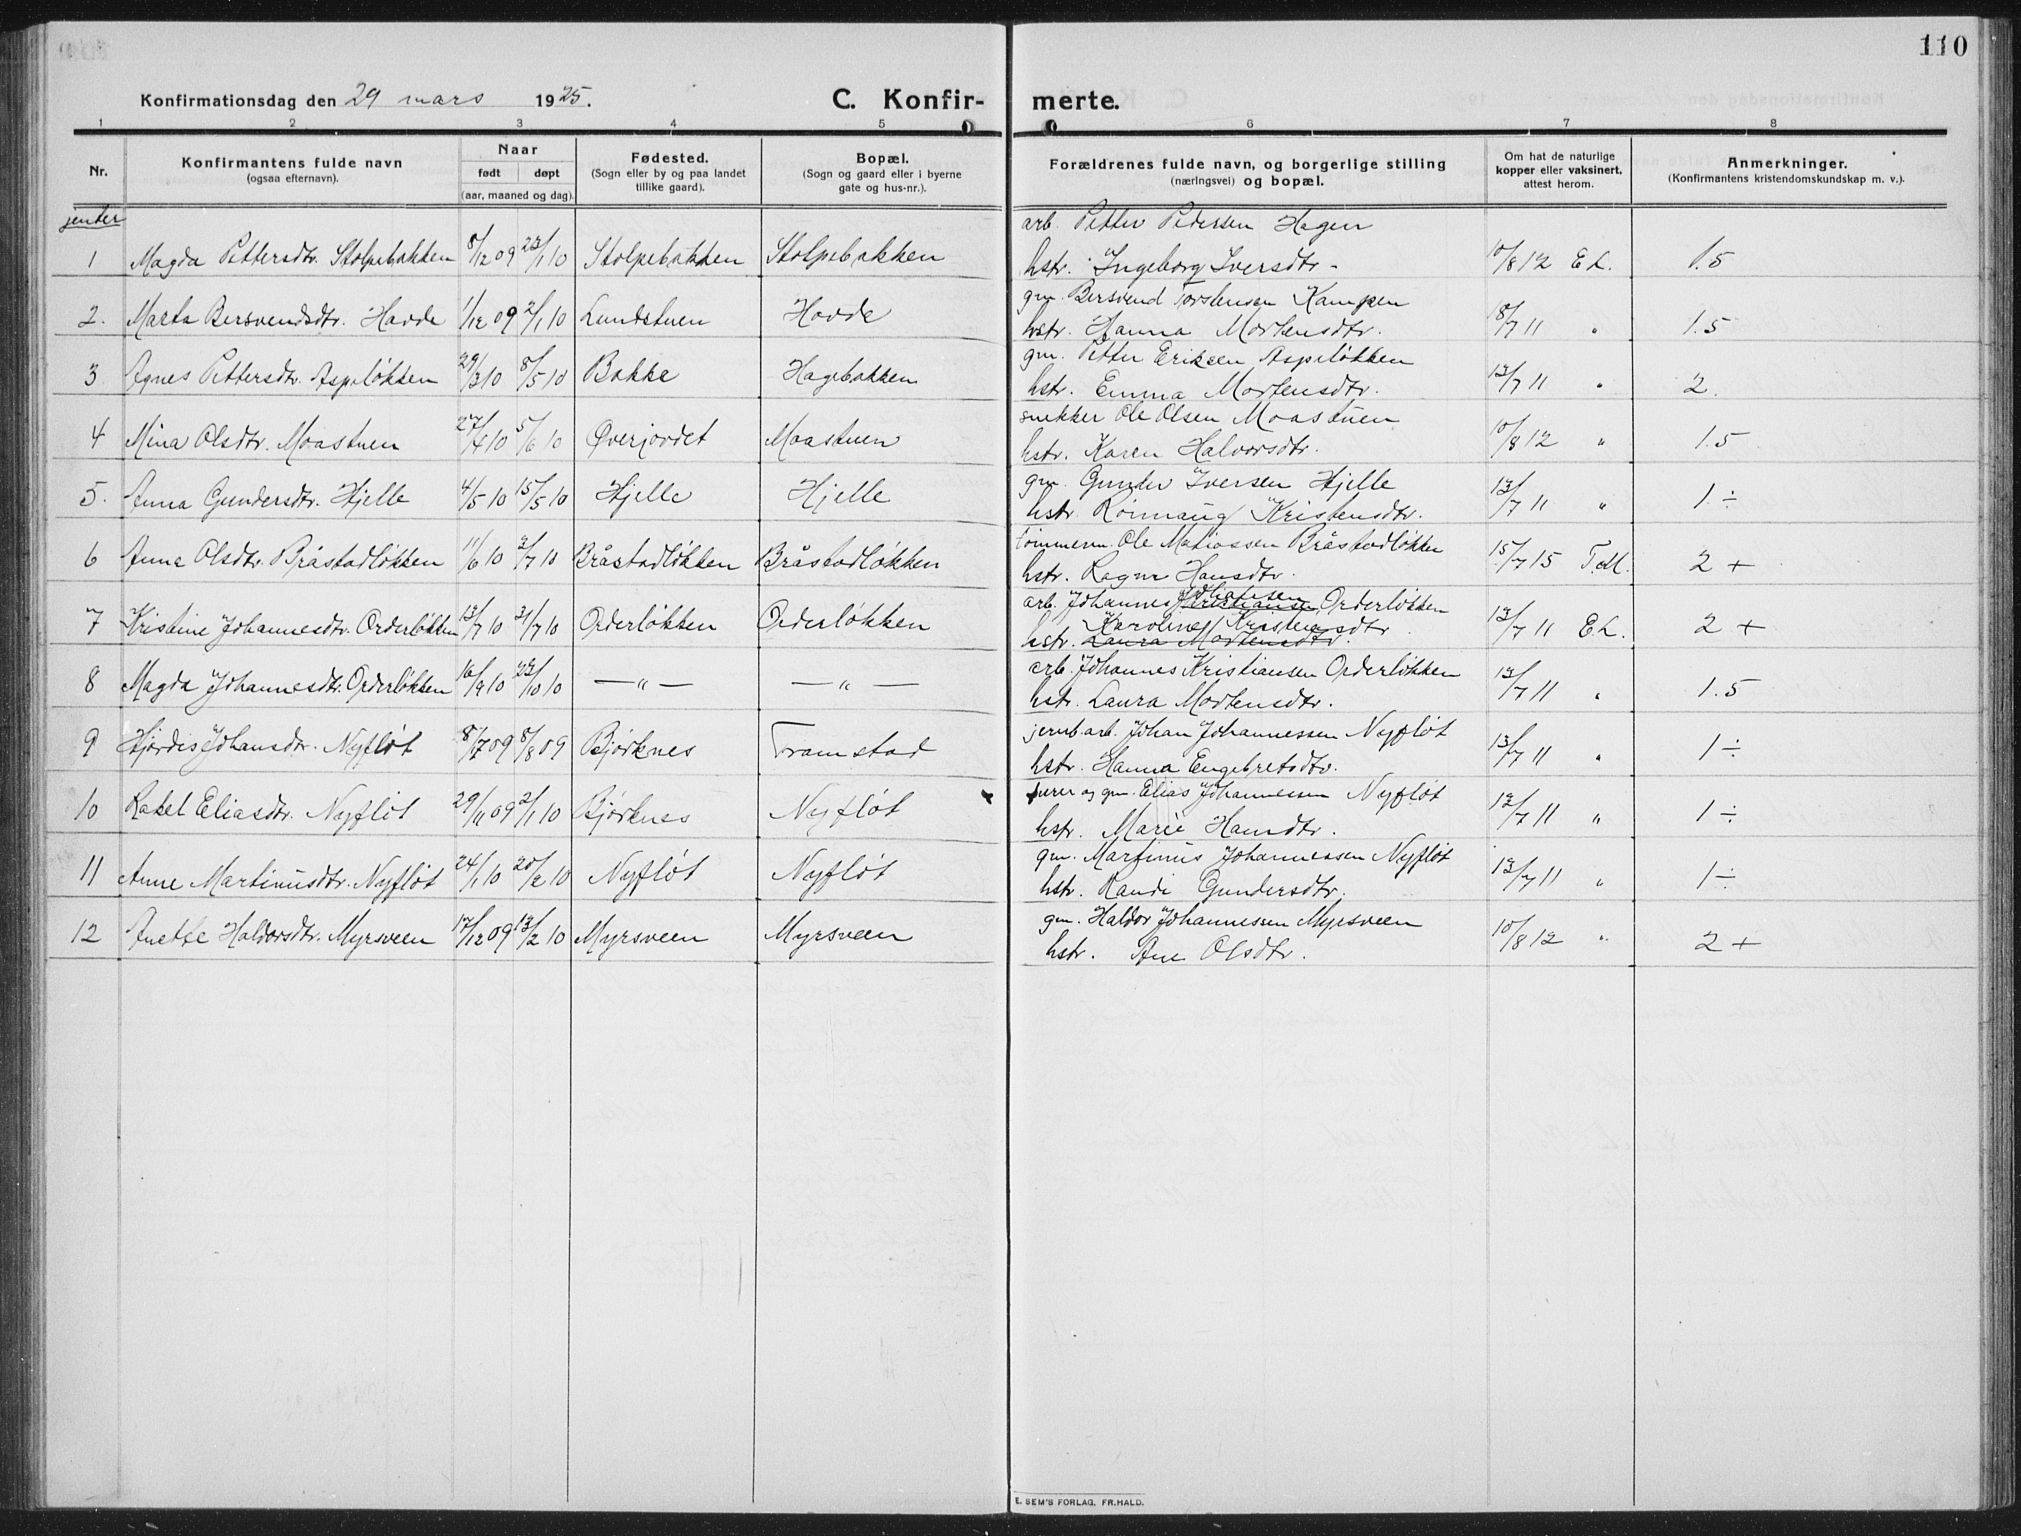 110
Konfirmationsdag den 29 mars 1925. C. Konfir- merte.
1 2 3 4 5 6 7 8
Nr. Konfirmantens fulde navn (ogsaa efternavn). Naar født døpt (aar, maaned og dag). Fødested. (Sogn eller by og paa landet tillike gaard). Bopæl. (Sogn og gaard eller i byerne gate og hus-nr.). Forældrenes fulde navn, og borgerlige stilling (næringsvei) og bopæl. Om hat de naturlige kopper eller vaksinert, attest herom. Anmerkninger. (Konfirmantens kristendomskundskap m. v.).
jenter
arb. Petter Pedersen Hagen
1 Magda Pettersdtr. Stolpebakken 8/12 09 23/1 10 Stolpebakken Stolpebakken hstr. Ingeborg Iversdtr. 10/8 12 E L. 1.5
gm. Bersvend Torstensen Kampen
2. Marta Bersvendsdtr. Hovde 1/12 09 2/1 10 Lundstuen Hovde hstr. Hanna Mortensdtr. 18/7 11 " 1.5
gm. Petter Eriksen Aspeløkken
3 Agnes Pettersdtr. Aspeløkken 29/3 10 8/5 10 Bakke Hagebakken hstr. Emma Mortensdtr. 13/7 11 " 2.
snekker Ole Olsen Moastuen
4 Mina Olsdtr. Moastuen 27/4 10 5/6 10 Øverjordet Moastuen hstr. Karen Halvorsdtr. 10/8 12 " 1.5
gm. Gunder Iversen Hjelle
5. Anna Gundersdtr. Hjelle 4/5 10 15/5 10 Hjelle Hjelle hstr. Rønnaug Kristensdtr. 13/7 11 " 1 ÷
tømmerm. Ole Matiassen Bråstadløkken
6 Anne Olsdtr. Bråstadløkken 11/6 10 3/7 10 Bråstadløkken Bråstadløkken hstr. Ragne Hansdtr. 15/7 15 T.M. 2 +
arb. Johannes Kristiansen Orderløkken
7 Kristine Johannesdtr. Orderløkken 13/7 10 31/7 10 Orderløkken Orderløkken Karoline Kristensdtr. 13/7 11 E L. 2 +
hstr. Laura Mortensdtr.
arb. Johannes Kristiansen Orderløkken
8 Magda Johannesdtr. Orderløkken 16/9 10 23/10 10 — " — — " — hstr. Laura Mortensdtr. 13/7 11 " 1.5
jernb.arb. Johan Johannessen Nyfløt
9 Hjørdis Johansdtr. Nyfløt 8/7 09 8/8 09 Bjørknes Tramstad hstr. Hanna Engebretsdtr. 13/7 11 " 1 ÷
furer og gm. Elias Johannessen Nyfløt
10 Rakel Eliasdtr. Nyfløt 29/11 09 2/1 10 Bjørknes Nyfløt hstr. Marie Hansdtr. 12/7 11 " 1 ÷
gm. Martinus Johannessen Nyfløt
11 Anne Martinusdtr. Nyfløt 24/1 10 20/2 10 Nyfløt Nyfløt hstr. Randi Gundersdtr. 13/7 11 " 1 ÷
gm. Haldor Johannessen Myrsveen
12 Anette Haldorsdtr. Myrsveen 17/12 09 13/2 10 Myrsveen Myrsveen hstr. Ane Olsdtr. 10/8 12 " 2 +
E. SEM'S FORLAG, FR.HALD.